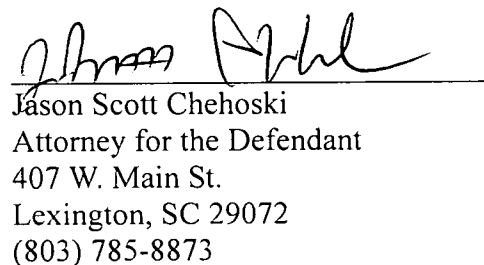 Jason Scott Chehoski
Attorney for the Defendant
407 W. Main St.
Lexington, SC 29072
(803) 785-8873